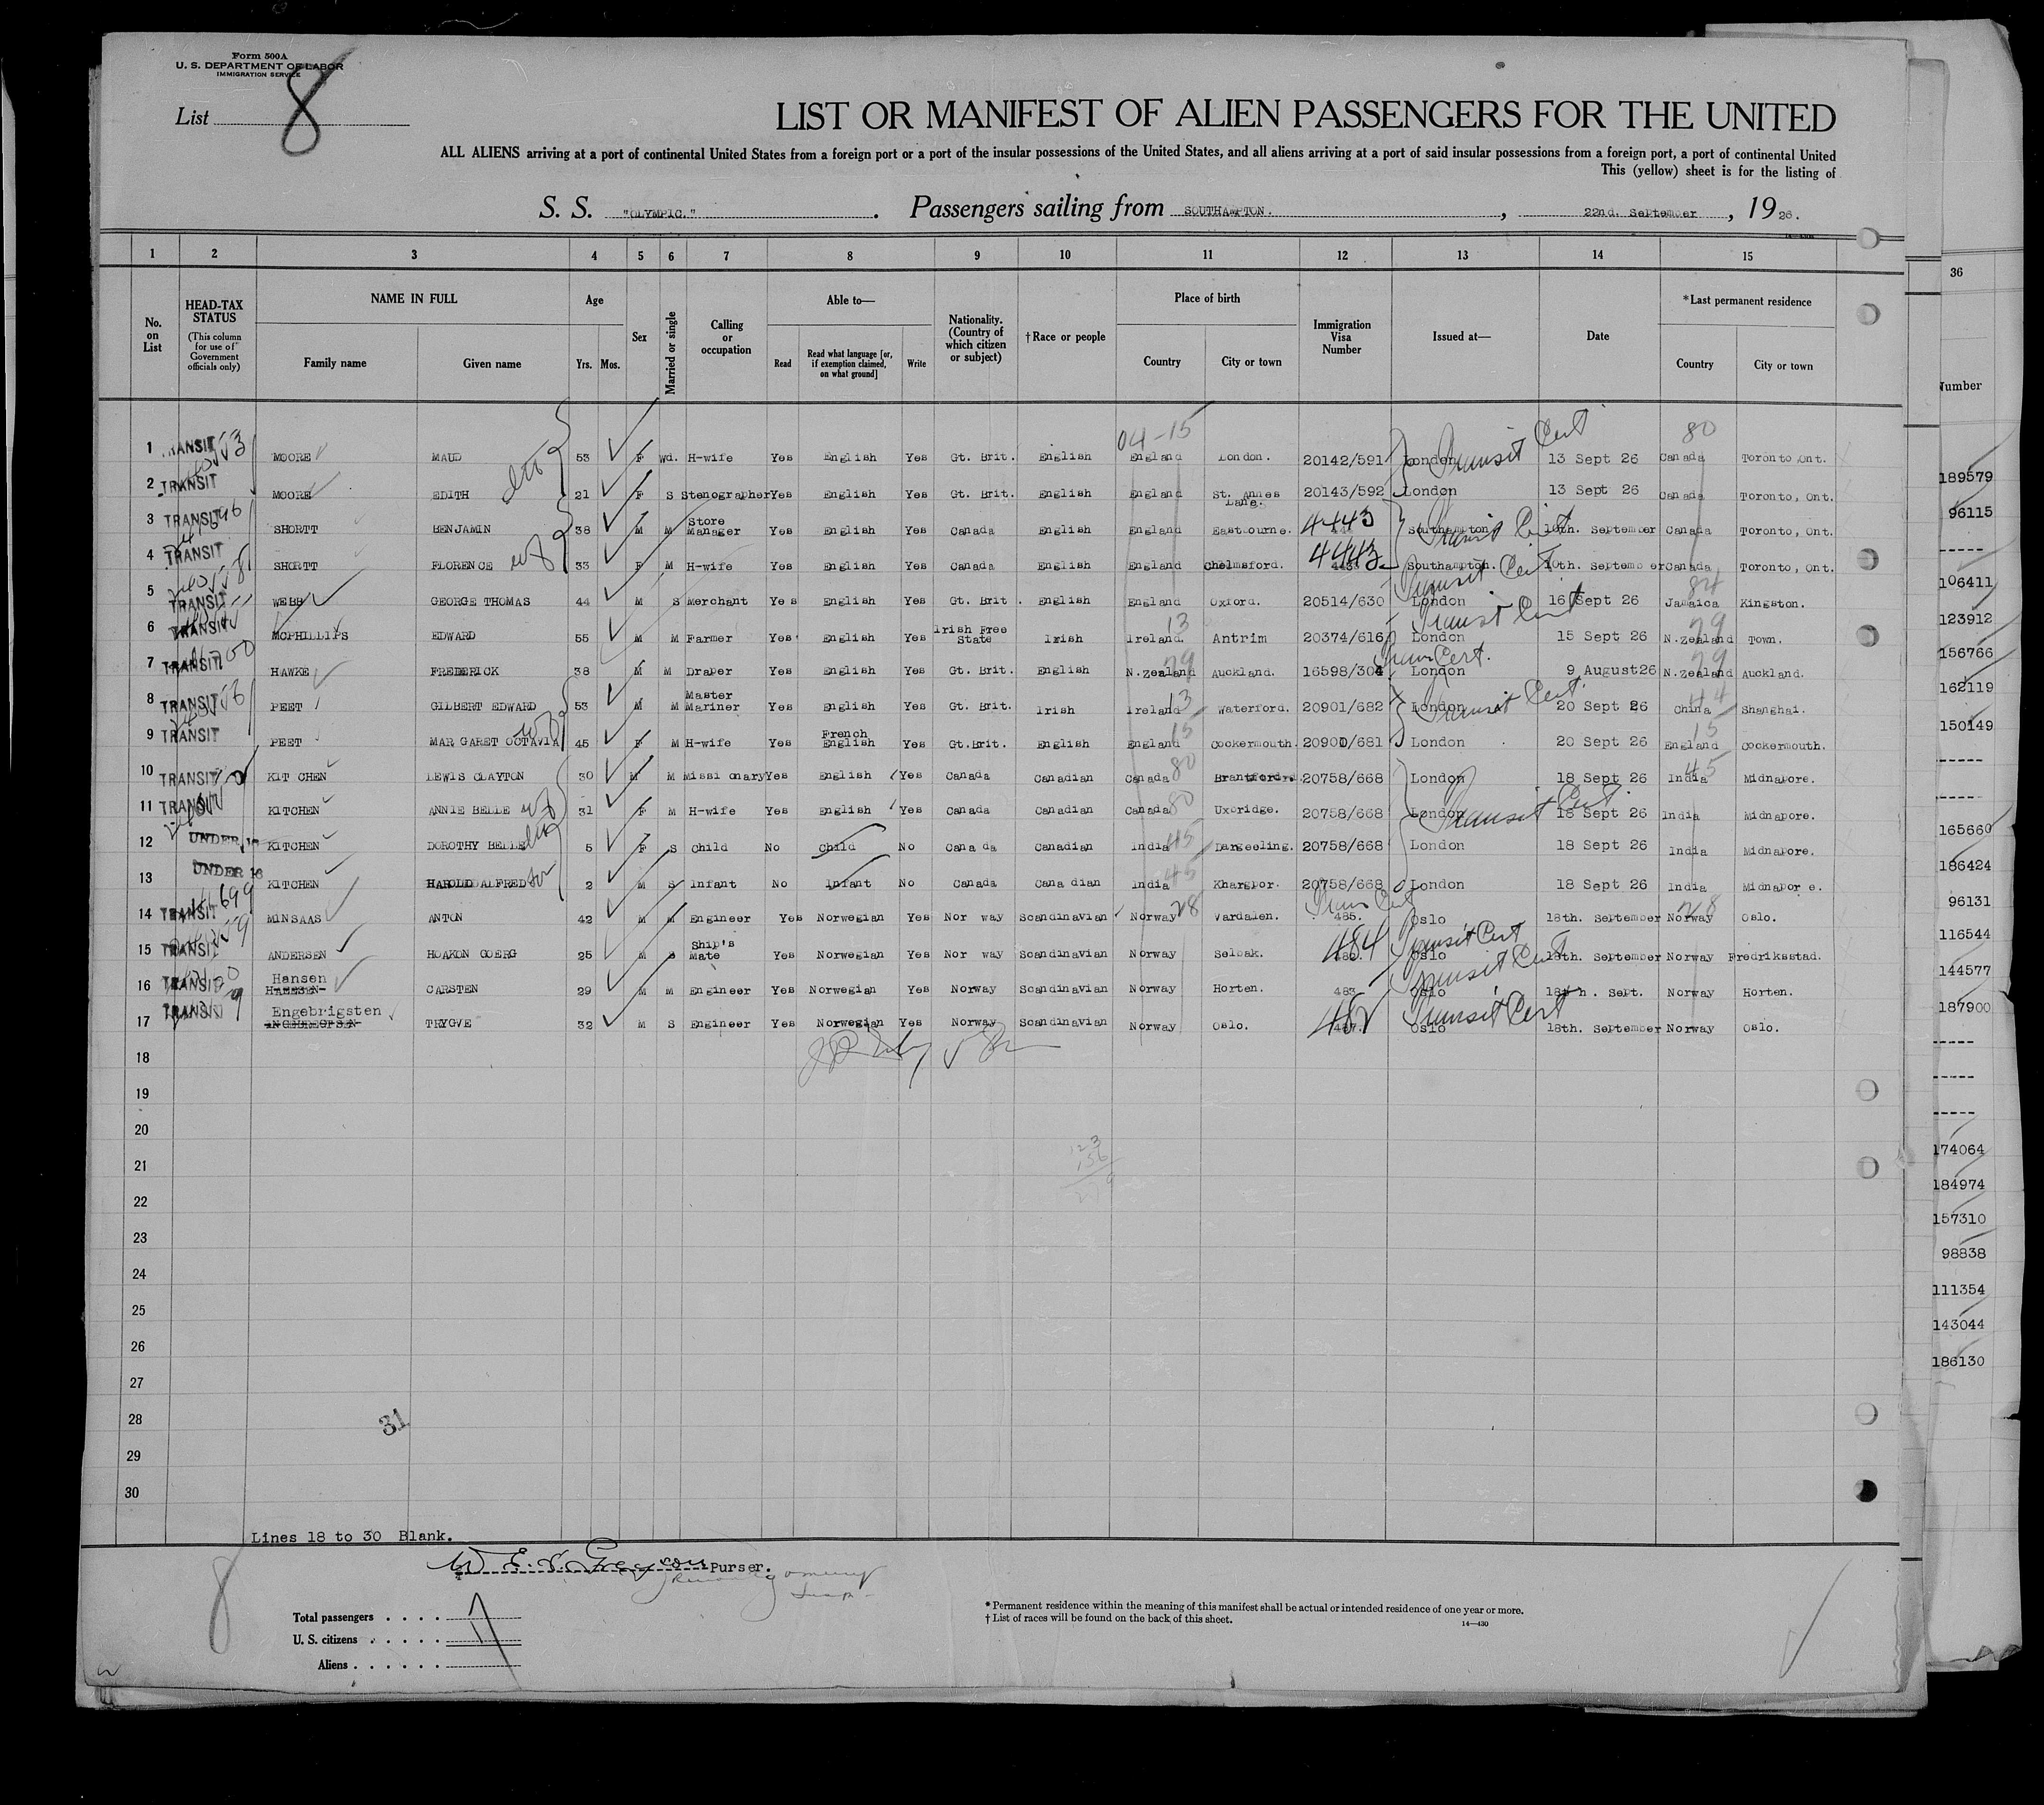 Form 500A
U. S. DEPARTMENT OF LABOR
IMMIGRATION SERVICE
List 8
LIST OR MANIFEST OF ALIEN PASSENGERS FOR THE UNITED
ALL ALIENS arriving at a port of continental United States from a foreign port or a port of the insular possessions of the United States, and all aliens arriving at a port of said insular possessions from a foreign port, a port of continental United
This (yellow) sheet is for the listing of
S. S. "OLYMPIC." Passengers sailing from SOUTHAMPTON. , 22nd. September , 19 26.
1 2 3 4 5 6 7 8 9 10 11 12 13 14 15
36
No. on List
HEAD-TAX STATUS
(This column for use of Government officials only)
NAME IN FULL
Family name Given name
Age
Yrs. Mos.
Sex
Married or single
Calling or occupation
Able to—
Read
Read what language [or, if exemption claimed, on what ground]
Write
Nationality. (Country of which citizen or subject)
†Race or people
Place of birth
Country City or town
Immigration Visa Number
Issued at—
Date
*Last permanent residence
Country City or town
Number
04-15 80
1 TRANSIT MOORE MAUD 53 F Wd. H-wife Yes English Yes Gt. Brit. English England London. 20142/591 London Transit Cert 13 Sept 26 Canada Toronto Ont.
2 TRANSIT MOORE EDITH 21 F S Stenographer Yes English Yes Gt. Brit. English England St. Annes Lane. 20143/592 London 13 Sept 26 Canada Toronto, Ont.
3 TRANSIT SHORTT BENJAMIN 38 M M Store Manager Yes English Yes Canada English England Eastbourne. 4443 Southampton Transit Cert 10th. September Canada Toronto, Ont.
4 TRANSIT SHORTT FLORENCE wf 33 F M H-wife Yes English Yes Canada English England Chelmsford. 4443 Southampton. 10th. September Canada Toronto, Ont.
5 TRANSIT WEBB GEORGE THOMAS 44 M S Merchant Yes English Yes Gt. Brit. English England Oxford. 20514/630 London Transit Cert 16 Sept 26 Jamaica Kingston.
6 TRANSIT MCPHILLIPS EDWARD 55 M M Farmer Yes English Yes Irish Free State Irish Ireland. 13 Antrim 20374/616 London Transit Cert 15 Sept 26 N. Zealand 79 Town.
7 TRANSIT HAWKE FREDERICK 38 M M Draper Yes English Yes Gt. Brit. English N. Zealand 79 Auckland. 16598/304 London Trans Cert. 9 August 26 N. Zealand 79 Auckland.
8 TRANSIT PEET GILBERT EDWARD 53 M M Master Mariner Yes English Yes Gt. Brit. Irish Ireland 13 Waterford. 20901/682 London Transit Cert. 20 Sept 26 China 44 Shanghai.
9 TRANSIT PEET MARGARET OCTAVIA 45 F M H-wife Yes French English Yes Gt.Brit. English England 15 Cockermouth. 20900/681 London 20 Sept 26 England 15 Cockermouth.
10 TRANSIT KITCHEN LEWIS CLAYTON 30 M M Missionary Yes English Yes Canada Canadian Canada 80 Brantford. 20758/668 London 18 Sept 26 India 45 Midnapore.
11 TRANSIT KITCHEN ANNIE BELLE wf 31 F M H-wife Yes English Yes Canada Canadian Canada 80 Uxbridge. 20758/668 London Transit Cert. 18 Sept 26 India Midnapore.
12 UNDER 16 KITCHEN DOROTHY BELLE 5 F S Child No Child No Canada Canadian India 45 Dargeeling. 20758/668 London 18 Sept 26 India Midnapore.
13 UNDER 16 KITCHEN HAROLD ALFRED son 2 M S Infant No Infant No Canada Canadian India 45 Khargpor. 20758/668 London 18 Sept 26 India Midnapore.
14 TRANSIT MINSAAS ANTON 42 M M Engineer Yes Norwegian Yes Norway Scandinavian Norway 28 Vardalen. 485. Oslo Trans Cert 18th. September Norway 28 Oslo.
15 TRANSIT ANDERSEN HOAKON GOERG 25 M S Ship's Mate Yes Norwegian Yes Norway Scandinavian Norway Selbak. 484 Oslo Transit Cert 18th. September Norway Fredriksstad.
16 TRANSIT Hansen CARSTEN 29 M M Engineer Yes Norwegian Yes Norway Scandinavian Norway Horten. 483 Oslo Transit Cert 18th. Sept. Norway Horten.
17 TRANSIT Engebrigsten TRYGVE 32 M S Engineer Yes Norwegian Yes Norway Scandinavian Norway Oslo. 482 Oslo Transit Cert 18th. September Norway Oslo.
18
19
20
21
22
23
24
25
26
27
28
29
30
31
189579
96115
-----
106411
123912
156766
162119
150149
-----
-----
165660
186424
96131
116544
144577
187900
-----
-----
-----
174064
184974
157310
98838
111354
143044
186130
Lines 18 to 30 Blank.
Purser.
8
Total passengers . . . . 17
U. S. citizens . . . . .
Aliens . . . . . .
* Permanent residence within the meaning of this manifest shall be actual or intended residence of one year or more.
† List of races will be found on the back of this sheet.
14—430